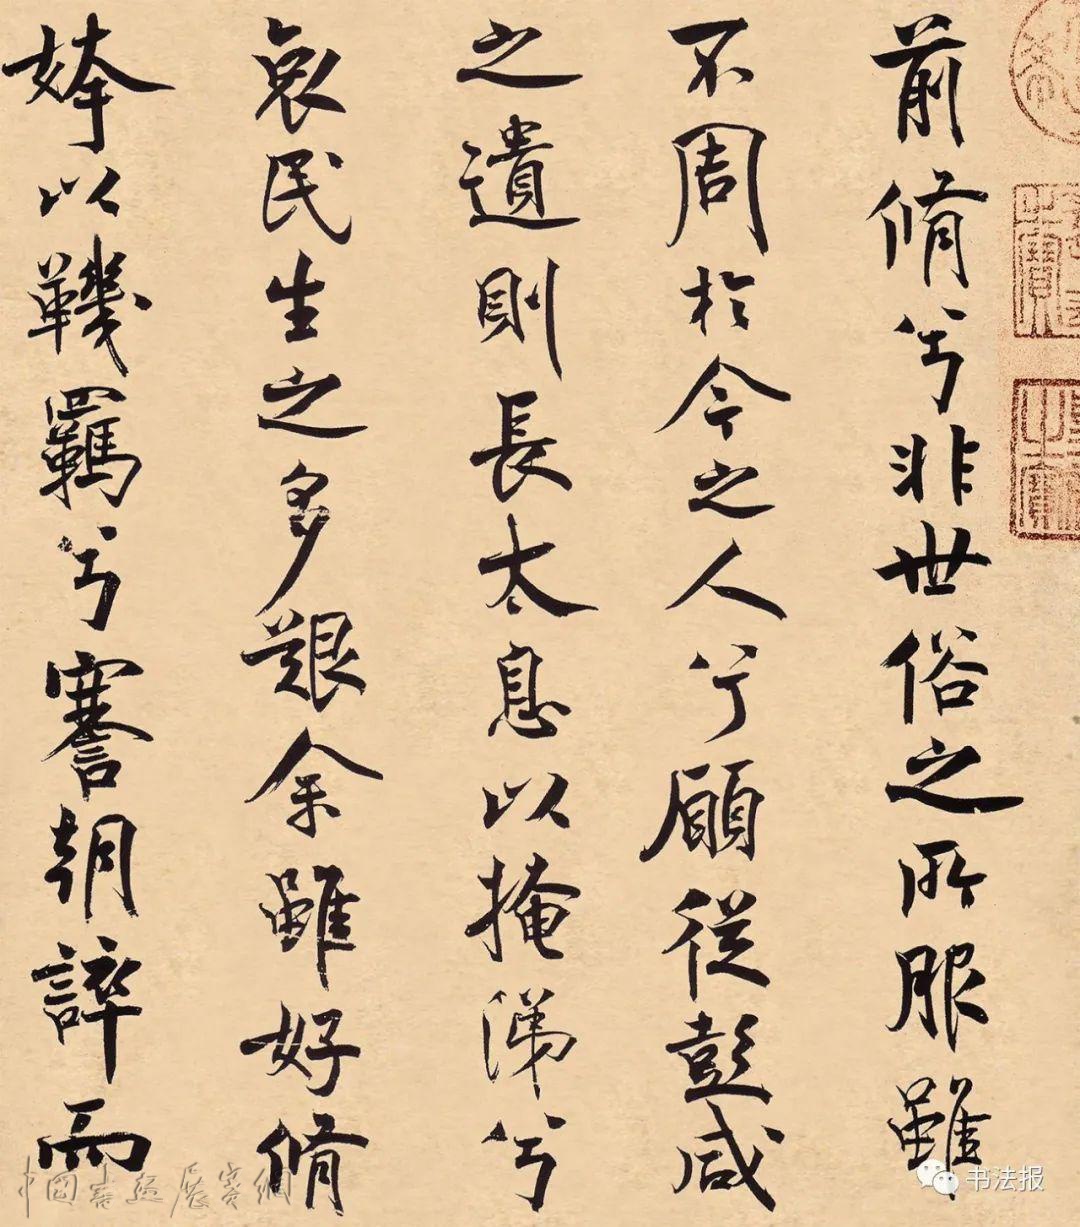 前脩兮非世俗之所服雖
不周於今之人兮願從彭咸
之遺則長太息以掩涕兮
哀民生之多艱余雖好脩
姱以鞿羈兮謇朝誶而
中國書法展賽網
书法报